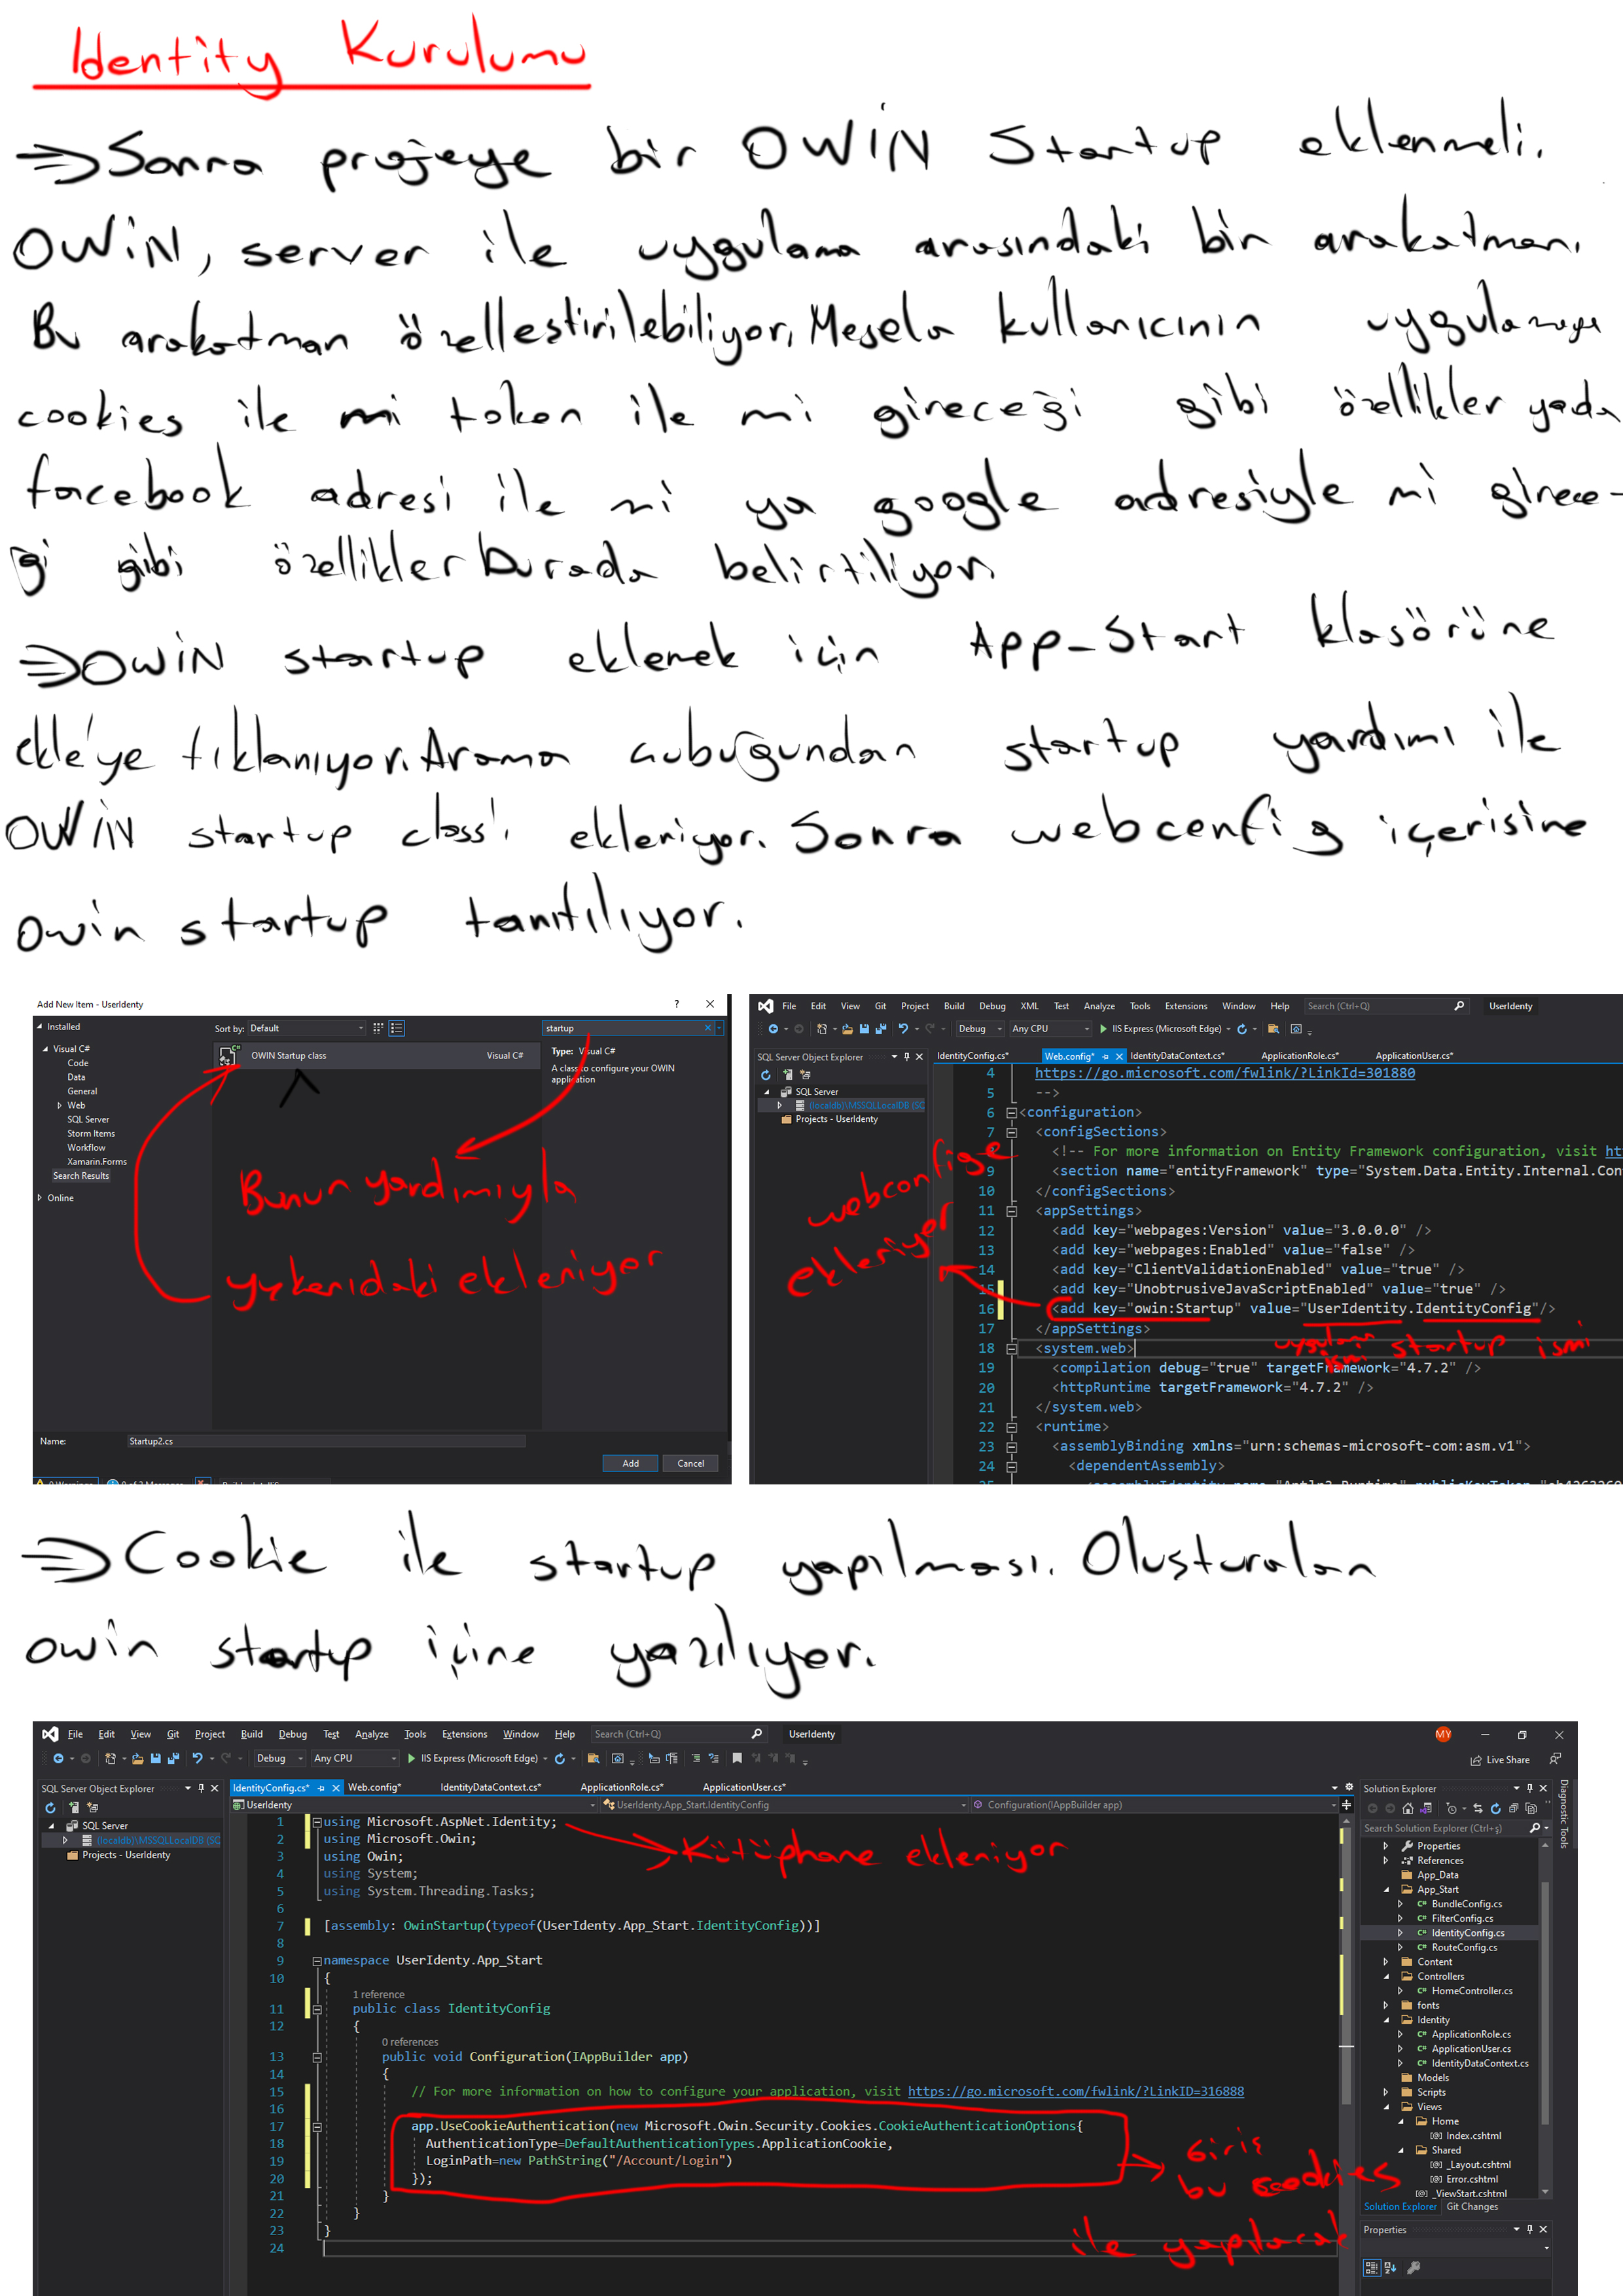 Identity Kurulumu
=>Sonra projeye bir OWİN Startup eklenmeli.
OWİN, server ile uygulama arasındaki bir arakatman.
Bu arakatman özelleştirilebiliyor. Mesela kullanıcının uygulamaya
cookies ile mi token ile mi gireceği gibi özellikler yada
facebook adresi ile mi ya google adresiyle mi girece-
ği gibi özellikler burada belirtiliyor.
=>OWİN startup eklemek için App_Start klasörüne
ekle'ye tıklanıyor. Arama çubuğundan startup yardımı ile
OWİN startup class'ı ekleniyor. Sonra webconfig içerisine
owin startup tanıtılıyor.
Add New Item - UserIdenty
? ×
Installed
Sort by: Default
startup
Visual C#
Code
Data
General
Web
SQL Server
Storm Items
Workflow
Xamarin.Forms
Search Results
Online
OWIN Startup class Visual C#
Type: Visual C#
A class to configure your OWIN
application
Bunun yardımıyla
yukarıdaki ekleniyor
Name: Startup2.cs
Add Cancel
File Edit View Git Project Build Debug XML Test Analyze Tools Extensions Window Help Search (Ctrl+Q) UserIdenty
Debug Any CPU IIS Express (Microsoft Edge)
SQL Server Object Explorer
IdentityConfig.cs* Web.config* IdentityDataContext.cs* ApplicationRole.cs* ApplicationUser.cs*
SQL Server
(localdb)\MSSQLLocalDB (SQ
Projects - UserIdenty
4 https://go.microsoft.com/fwlink/?LinkId=301880
5 -->
6 <configuration>
7 <configSections>
8 <!-- For more information on Entity Framework configuration, visit ht
9 <section name="entityFramework" type="System.Data.Entity.Internal.Con
10 </configSections>
11 <appSettings>
12 <add key="webpages:Version" value="3.0.0.0" />
13 <add key="webpages:Enabled" value="false" />
14 <add key="ClientValidationEnabled" value="true" />
15 <add key="UnobtrusiveJavaScriptEnabled" value="true" />
16 <add key="owin:Startup" value="UserIdentity.IdentityConfig"/>
17 </appSettings>
18 <system.web>
19 <compilation debug="true" targetFramework="4.7.2" />
20 <httpRuntime targetFramework="4.7.2" />
21 </system.web>
22 <runtime>
23 <assemblyBinding xmlns="urn:schemas-microsoft-com:asm.v1">
24 <dependentAssembly>
webconfige
ekleniyor
uygulama
ismi
startup ismi
=>Cookie ile startup yapılması. Oluşturalan
owin startup içine yazılıyor.
File Edit View Git Project Build Debug Test Analyze Tools Extensions Window Help Search (Ctrl+Q) UserIdenty MY
Debug Any CPU IIS Express (Microsoft Edge) Live Share
SQL Server Object Explorer
SQL Server
(localdb)\MSSQLLocalDB (SQ
Projects - UserIdenty
IdentityConfig.cs* Web.config* IdentityDataContext.cs* ApplicationRole.cs* ApplicationUser.cs*
UserIdenty UserIdenty.App_Start.IdentityConfig Configuration(IAppBuilder app)
1 using Microsoft.AspNet.Identity;
2 using Microsoft.Owin;
3 using Owin;
4 using System;
5 using System.Threading.Tasks;
6
7 [assembly: OwinStartup(typeof(UserIdenty.App_Start.IdentityConfig))]
8
9 namespace UserIdenty.App_Start
10 {
1 reference
11 public class IdentityConfig
12 {
0 references
13 public void Configuration(IAppBuilder app)
14 {
15 // For more information on how to configure your application, visit https://go.microsoft.com/fwlink/?LinkID=316888
16
17 app.UseCookieAuthentication(new Microsoft.Owin.Security.Cookies.CookieAuthenticationOptions{
18 AuthenticationType=DefaultAuthenticationTypes.ApplicationCookie,
19 LoginPath=new PathString("/Account/Login")
20 });
21 }
22 }
23 }
24
Kütüphane ekleniyor
Giriş
bu cookies
ile yapılacak
Solution Explorer
Search Solution Explorer (Ctrl+ş)
Properties
References
App_Data
App_Start
BundleConfig.cs
FilterConfig.cs
IdentityConfig.cs
RouteConfig.cs
Content
Controllers
HomeController.cs
fonts
Identity
ApplicationRole.cs
ApplicationUser.cs
IdentityDataContext.cs
Models
Scripts
Views
Home
Index.cshtml
Shared
_Layout.cshtml
Error.cshtml
_ViewStart.cshtml
Solution Explorer Git Changes
Properties
Diagnostic Tools